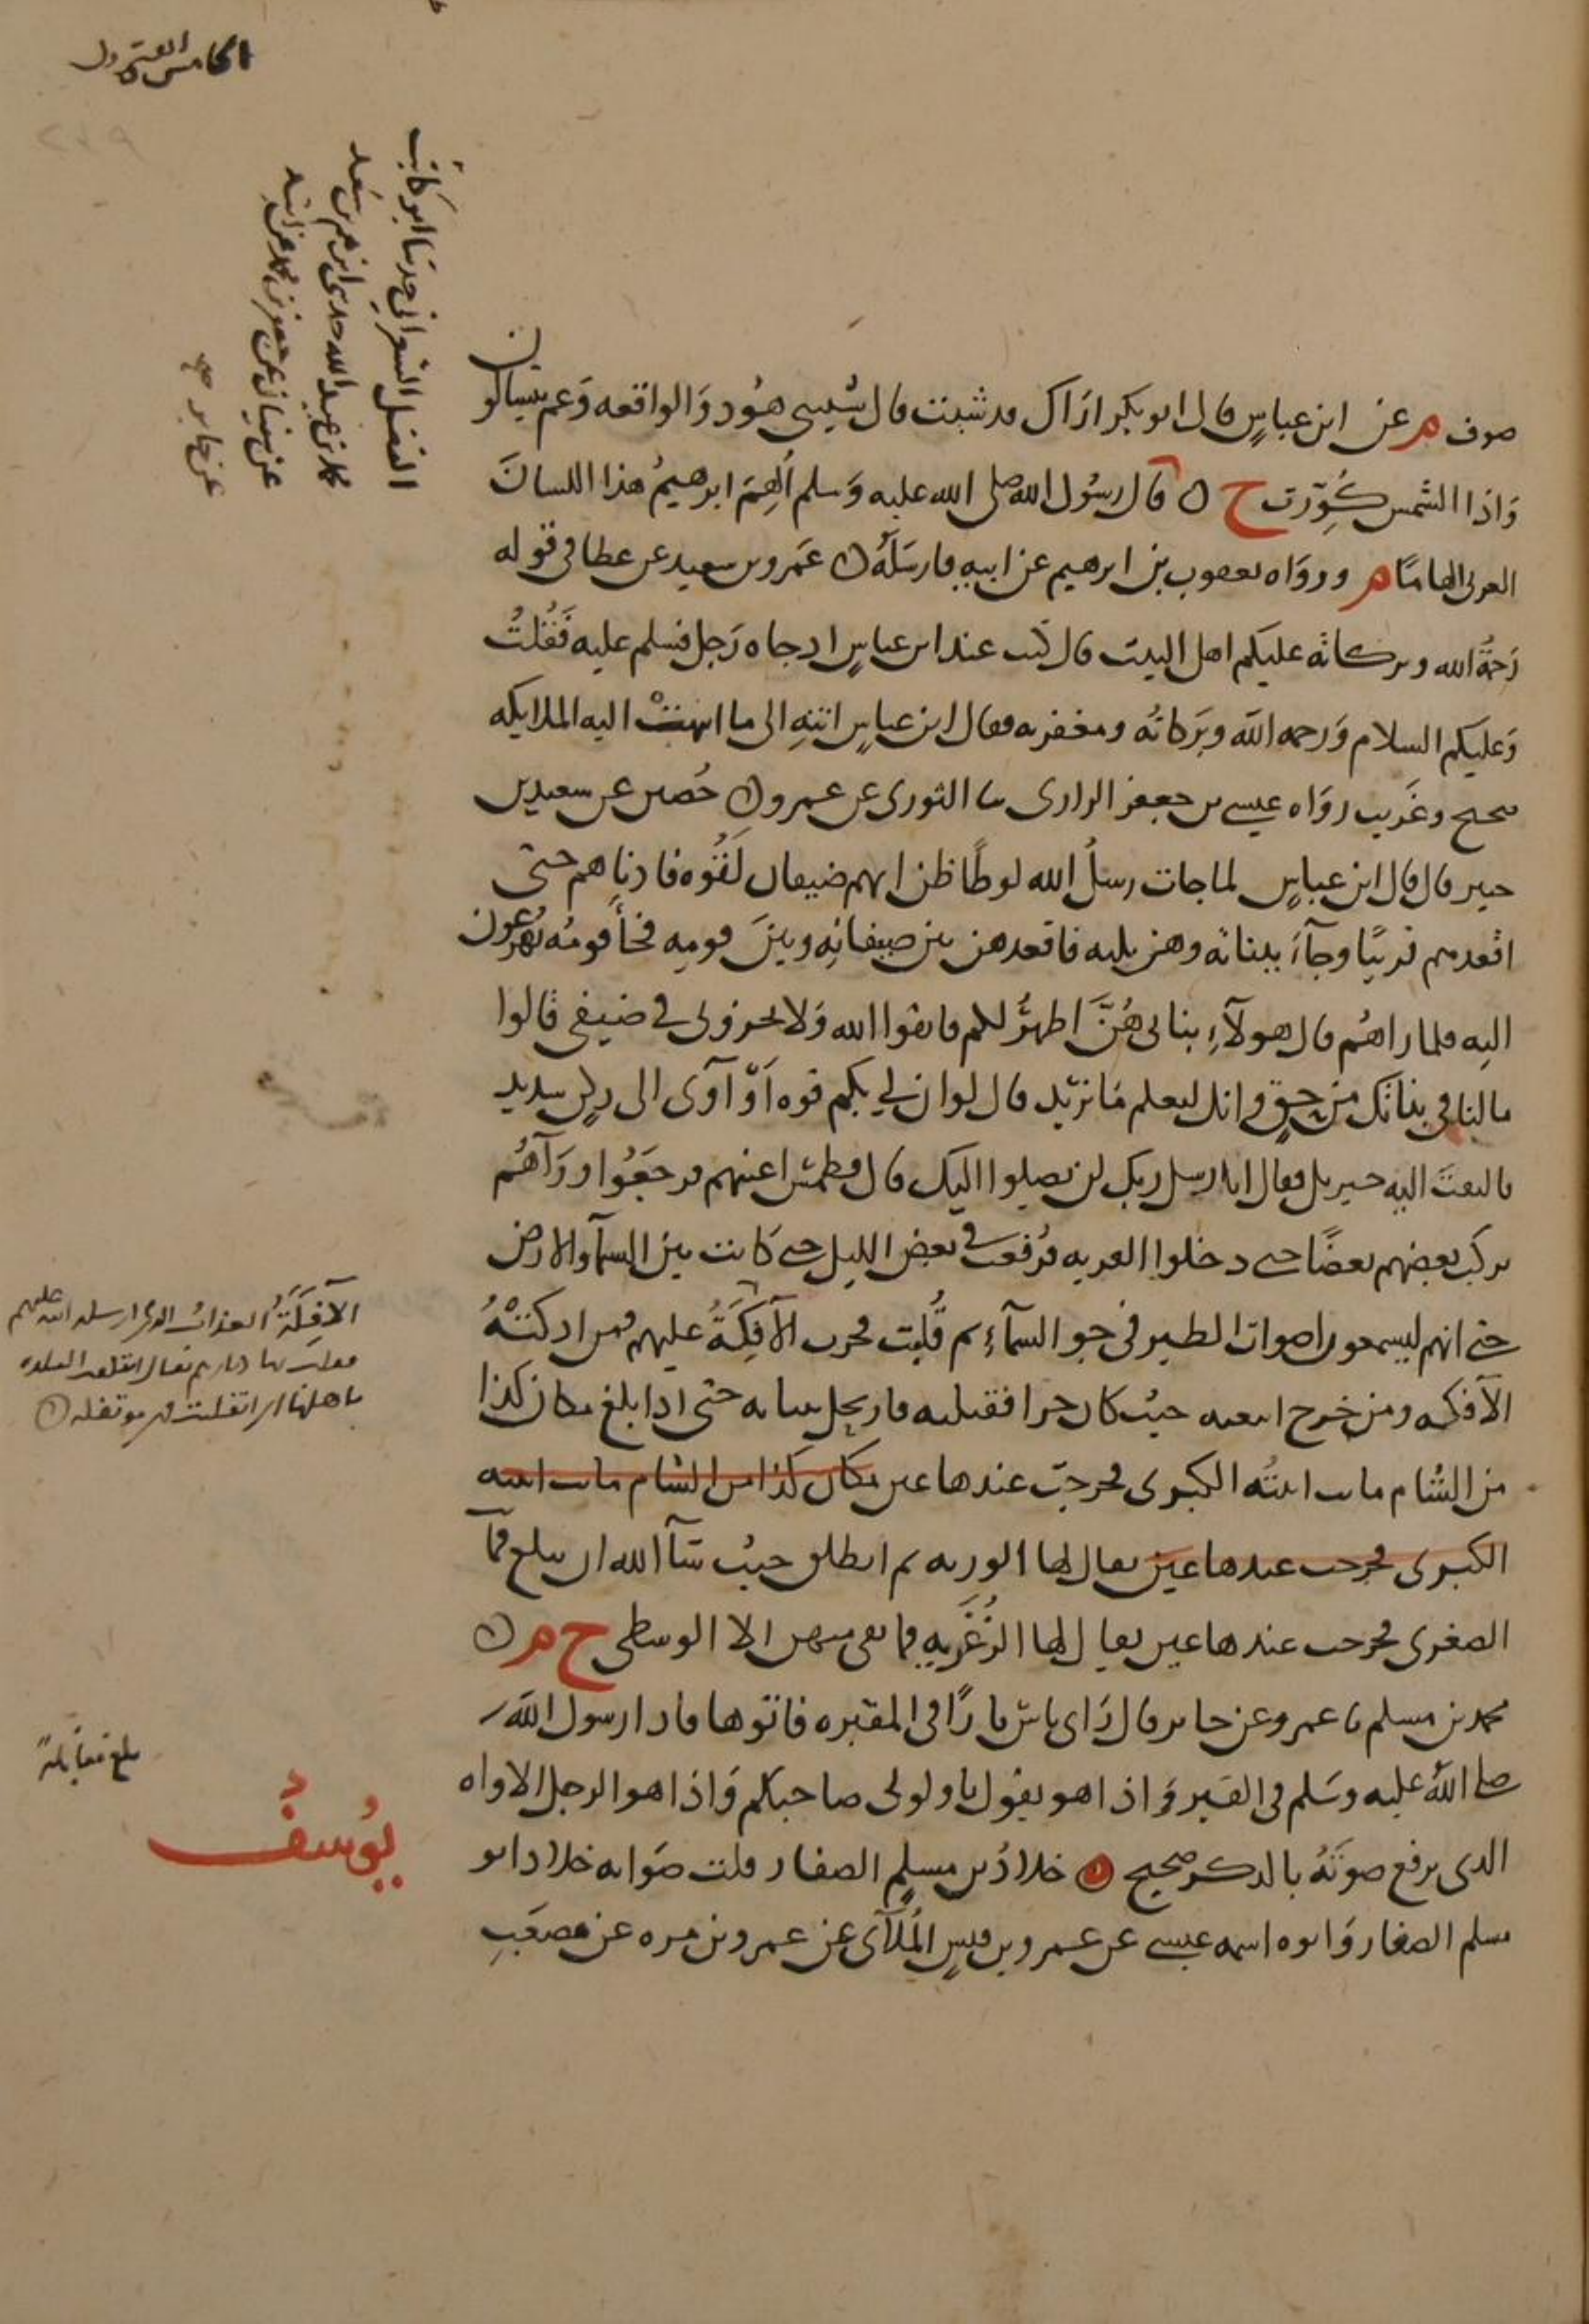 الخامس والعشرون
الفضل الشعراني حدثنا ابو ثابت
محمد بن عبيد الله حدثني ابراهيم بن سعد
عن سفيان عن جعفر بن محمد عن ابيه
عن جابر صح
صوف م عن ابن عباسٍ قال ابو بكر اراك قد شبت قال شيبتنى هود وَالواقعه وَعم يتسالون
وَاذا الشمس كُوِّرَت خ ن قال رسُول الله صلى الله عليه وَسلم اُلهِمَ ابرهيمُ هذا اللسانَ
العربى الهامًا م ورواه يعقوب بن ابرهيم عن ابيه فارسَلَهُ ن عَمرو بن سعيد عن عطا فى قوله
رَحمةُ الله وبركاته عليكم اهل البيت قال كنت عند ابن عباسٍ اذ جاه رَجل فسلم عليه فَقُلتُ
وَعليكم السلام وَرحمه الله وبَركاتُه ومغفره فقال ابن عباسٍ انتهِ الى ما انتهتْ اليه الملايكه
صحيح وغَريب رواه عيسى بن جعفر الرازى ثنا الثورى عن عمرو ن حُصين عن سعيد بن
جبير قال قال ابن عباسٍ لما جات رسلُ الله لوطًا ظن انهم ضيفان لَقُوه فادناهم حتى
اقعدهم قريبًا وجآءَ ببناته وهن ثلثه فاقعدهن بين ضيفانِه وبينَ قومِه فجآ قومُه يُهرعون
اليه فلما راهُم قال هولآءِ بناتى هُنَّ اطهرُ لكم فاتقوا الله وَلا تخزونى فى ضيفى قالوا
مالنا فى بناتك من حقٍ وانك لتعلم مَا نريد قال لو ان لى بكم قوه اَوْ آوى الى ركن شديد
فالتفتَ اليه جبريل فقال انا رسل ربك لن يصلوا اليك قال فطمس اعينهم فرجَعُوا ورَآهُم
يركب بعضهم بعضًا حتى دخلوا القريه فرُفعت فى بعض الليل حتى كانت بين السمآ والارض
حتى انهم ليسمعون اصوات الطير فى جو السمآءِ ثم قُلِبت فخرجت الآفِكَةُ عليهم فمن ادركتْهُ
الآفكه ومن خرج اتبعته حيث كان حجرا فقتلته فارتحل ببناته حتى اذا بلغ مكان كذا
من الشام ماتت ابنتُه الكبرى فخرجت عندها عين مكان كذا من الشام ماتت ابنته
الكبرى فخرجت عندها عين يقال لها الوريه ثم انطلق حيث شآ الله ان يبلغ فماتت
الصغرى فخرجت عندها عين يقال لها الزُغَريه فما بقى منهن الا الوسطى خ م ن
محمد بن مسلم ثنا عمرو عن جابر قال رَاى ناسٌ نارًا فى المقبره فاتوها فاذا رسول الله
صلى اللهُ عليه وسَلم فى القبر وَاذا هو يقول ناولونى صاحبكم وَاذا هو الرجل الاواه
الذى يرفع صوتَهُ بالذكر صحيح ن خلادُ بن مسلمٍ الصفار قلت صَوابه خلاد ابو
مسلم الصفار وَابوه اسمه عيسى عن عمرو بن قيسٍ المُلآى عن عمرو بن مره عن مصعَبِ
الآفِكَةُ العذاب الذى ارسله الله عليهم
فقلب بها ديارهم يقال ايتفكت البلده
باهلها اى انقلبت فهى موتفكه ن
بلغ مقابلةً
يُوسفُ